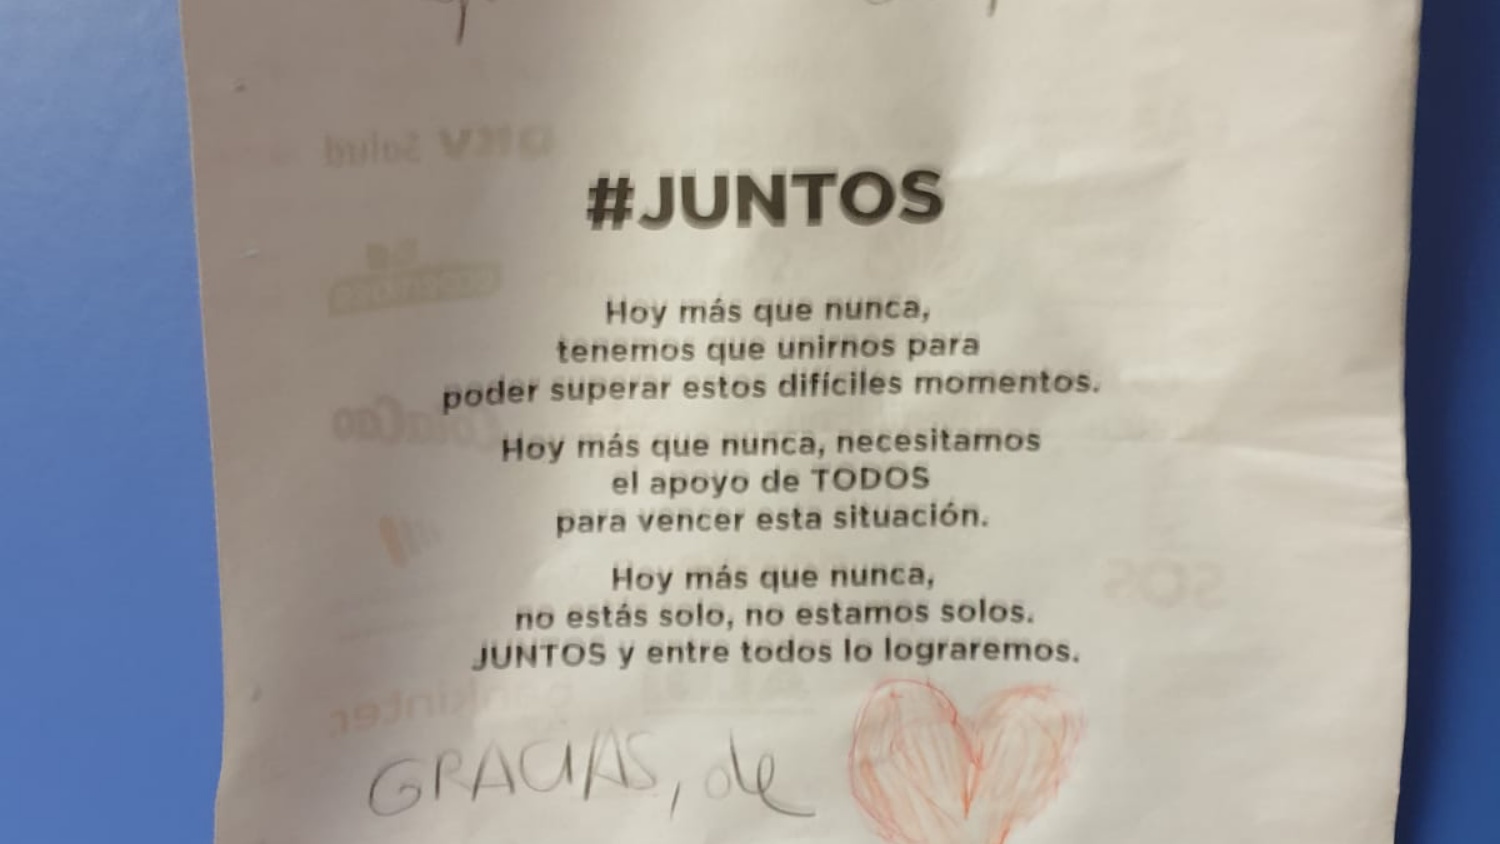 #JUNTOS
Hoy más que nunca,
tenemos que unirnos para
poder superar estos difíciles momentos.
Hoy más que nunca, necesitamos
el apoyo de TODOS
para vencer esta situación.
Hoy más que nunca,
no estás solo, no estamos solos.
JUNTOS y entre todos lo lograremos.
GRACIAS, de
DKV Salud
ColaCao
SOS
bankinter.